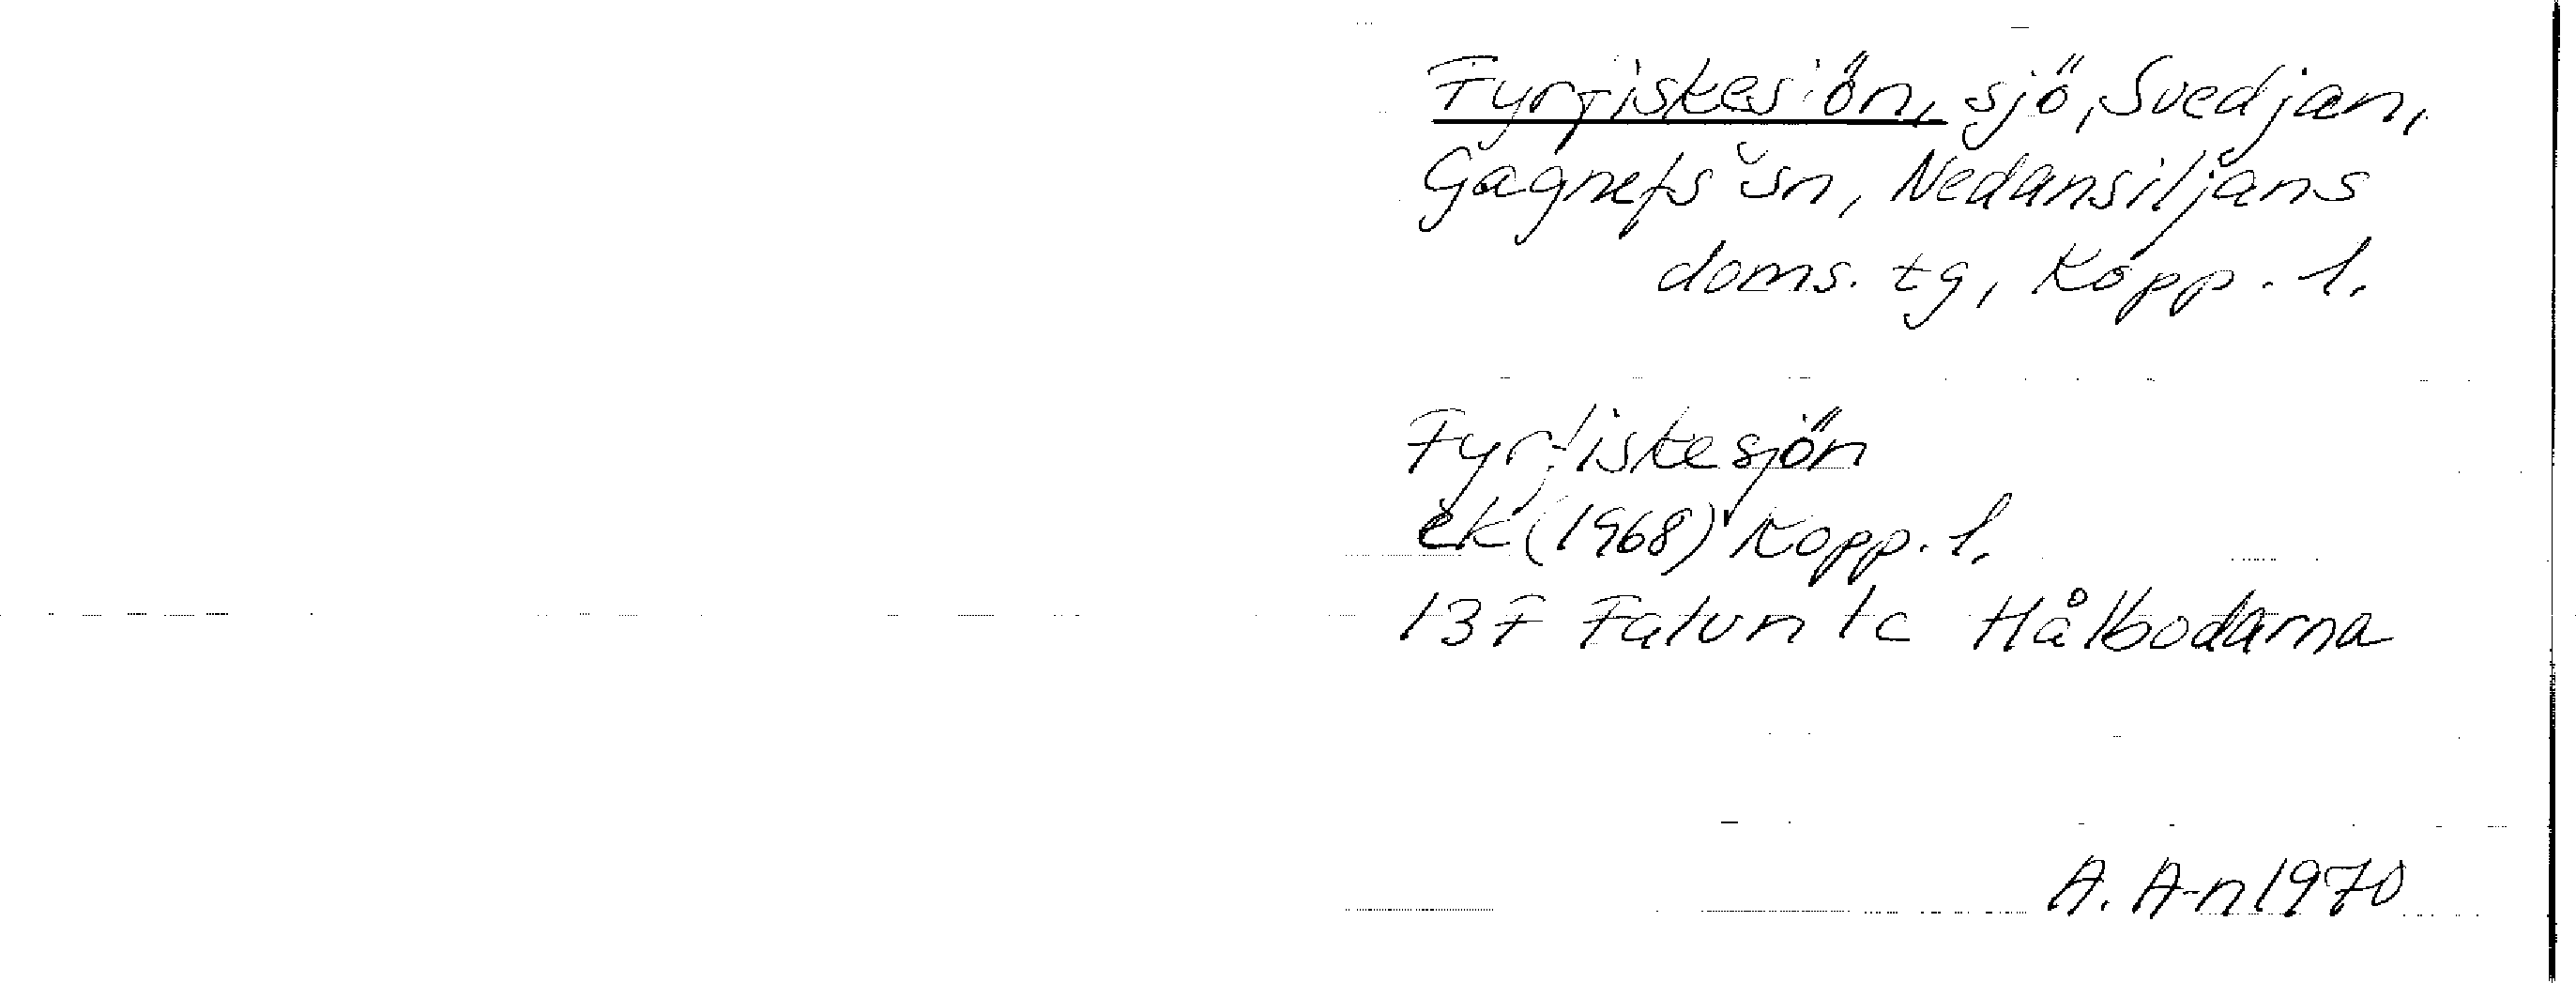 Fyrfiskesjön, sjö, Svedjan,
Gagnefs sn, Nedansiljans
doms. tg, Kopp. l.
Fyrfiskesjön
ek (1968) Kopp. l.
13F Falun 1c Hålbodarna
A. A-n 1970